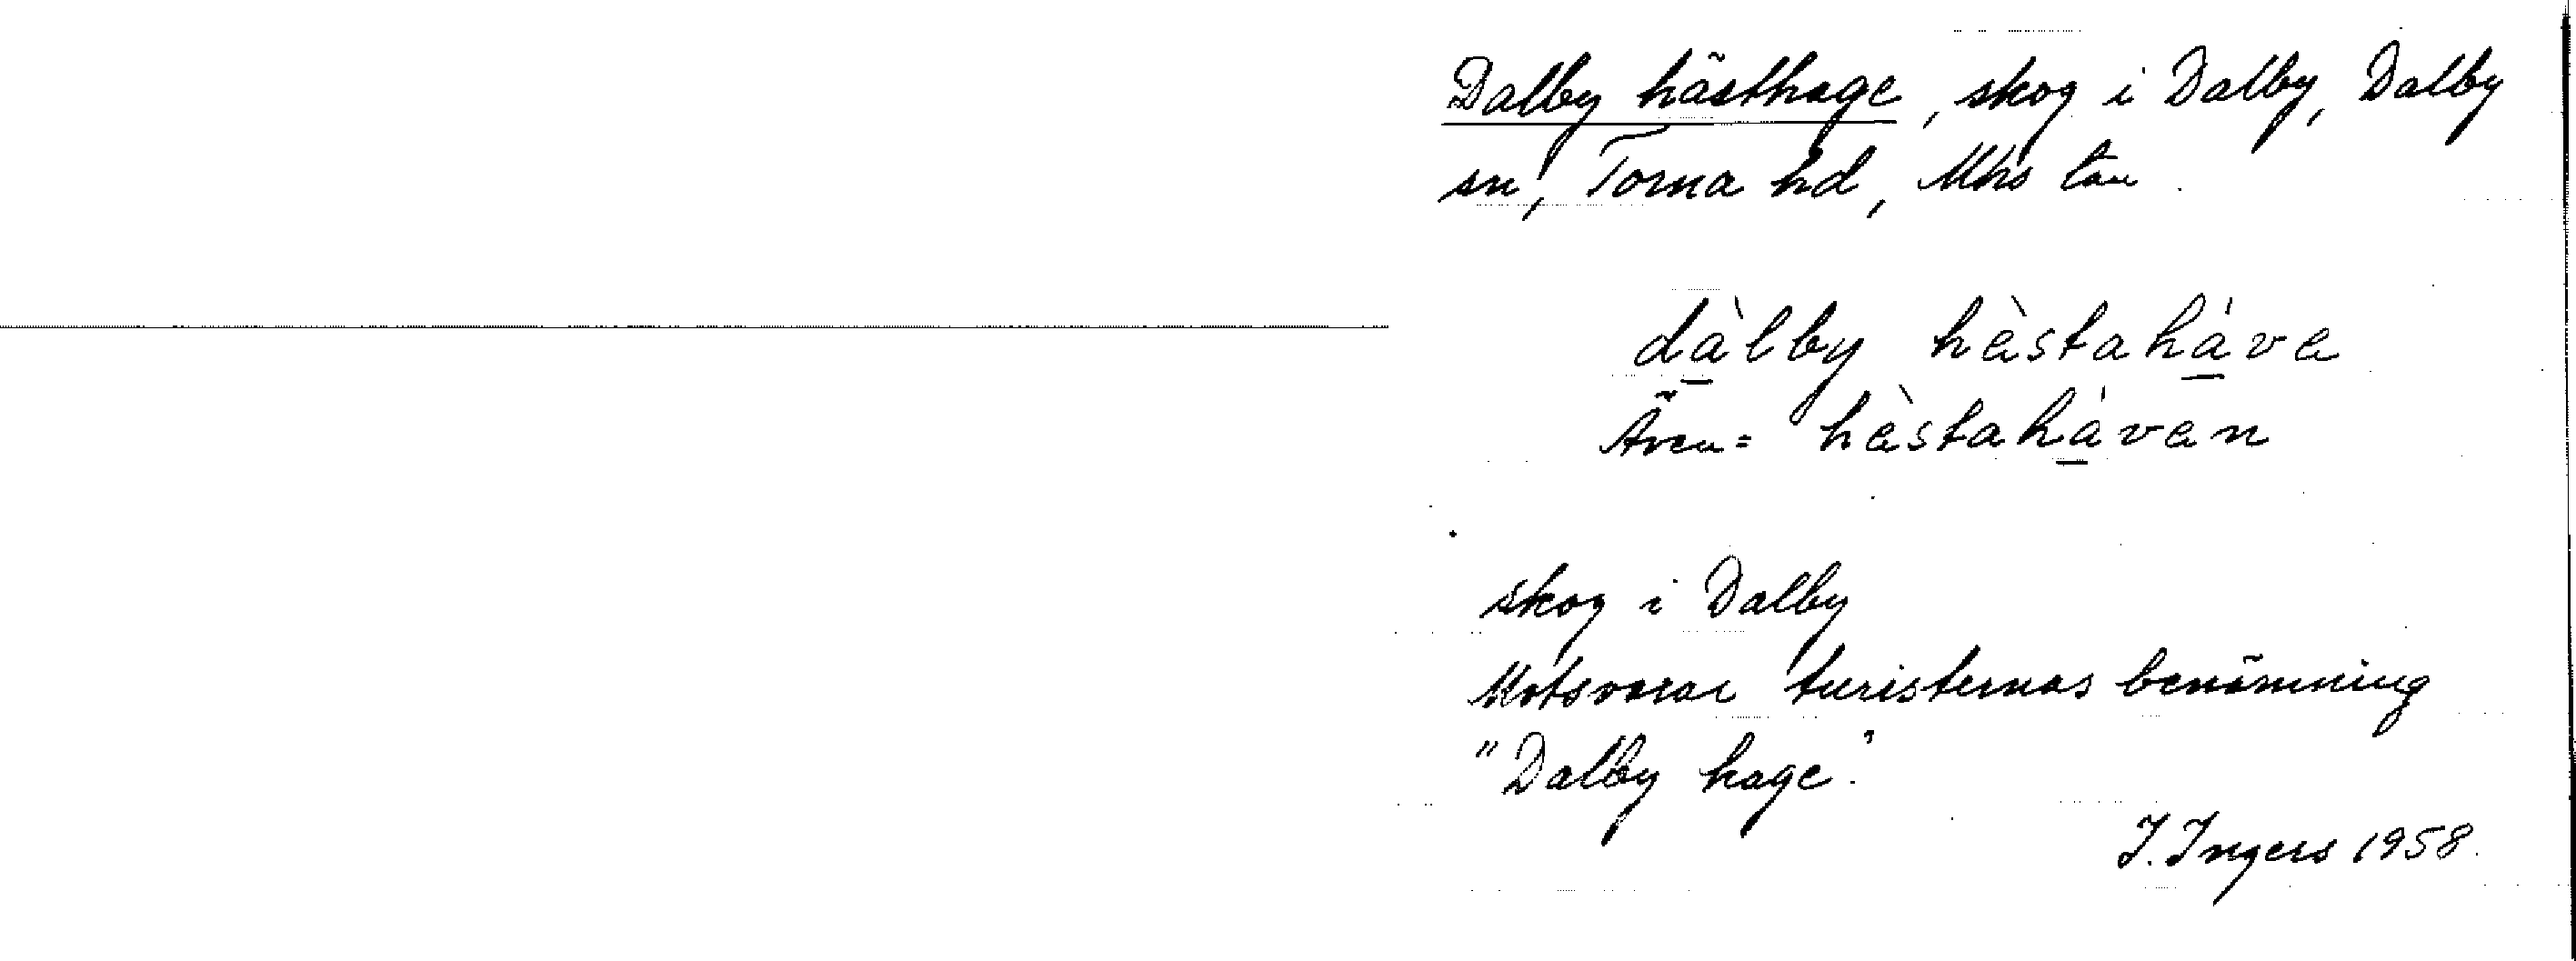 Dalby hästhage, skog i Dalby, Dalby
sn, Torna hd, Mhs län.
dàlby hèstahàva
Även: hèstahàvan
skog i Dalby
Motsvarar turisternas benämning
"Dalby hage".
I. Ingers 1958.